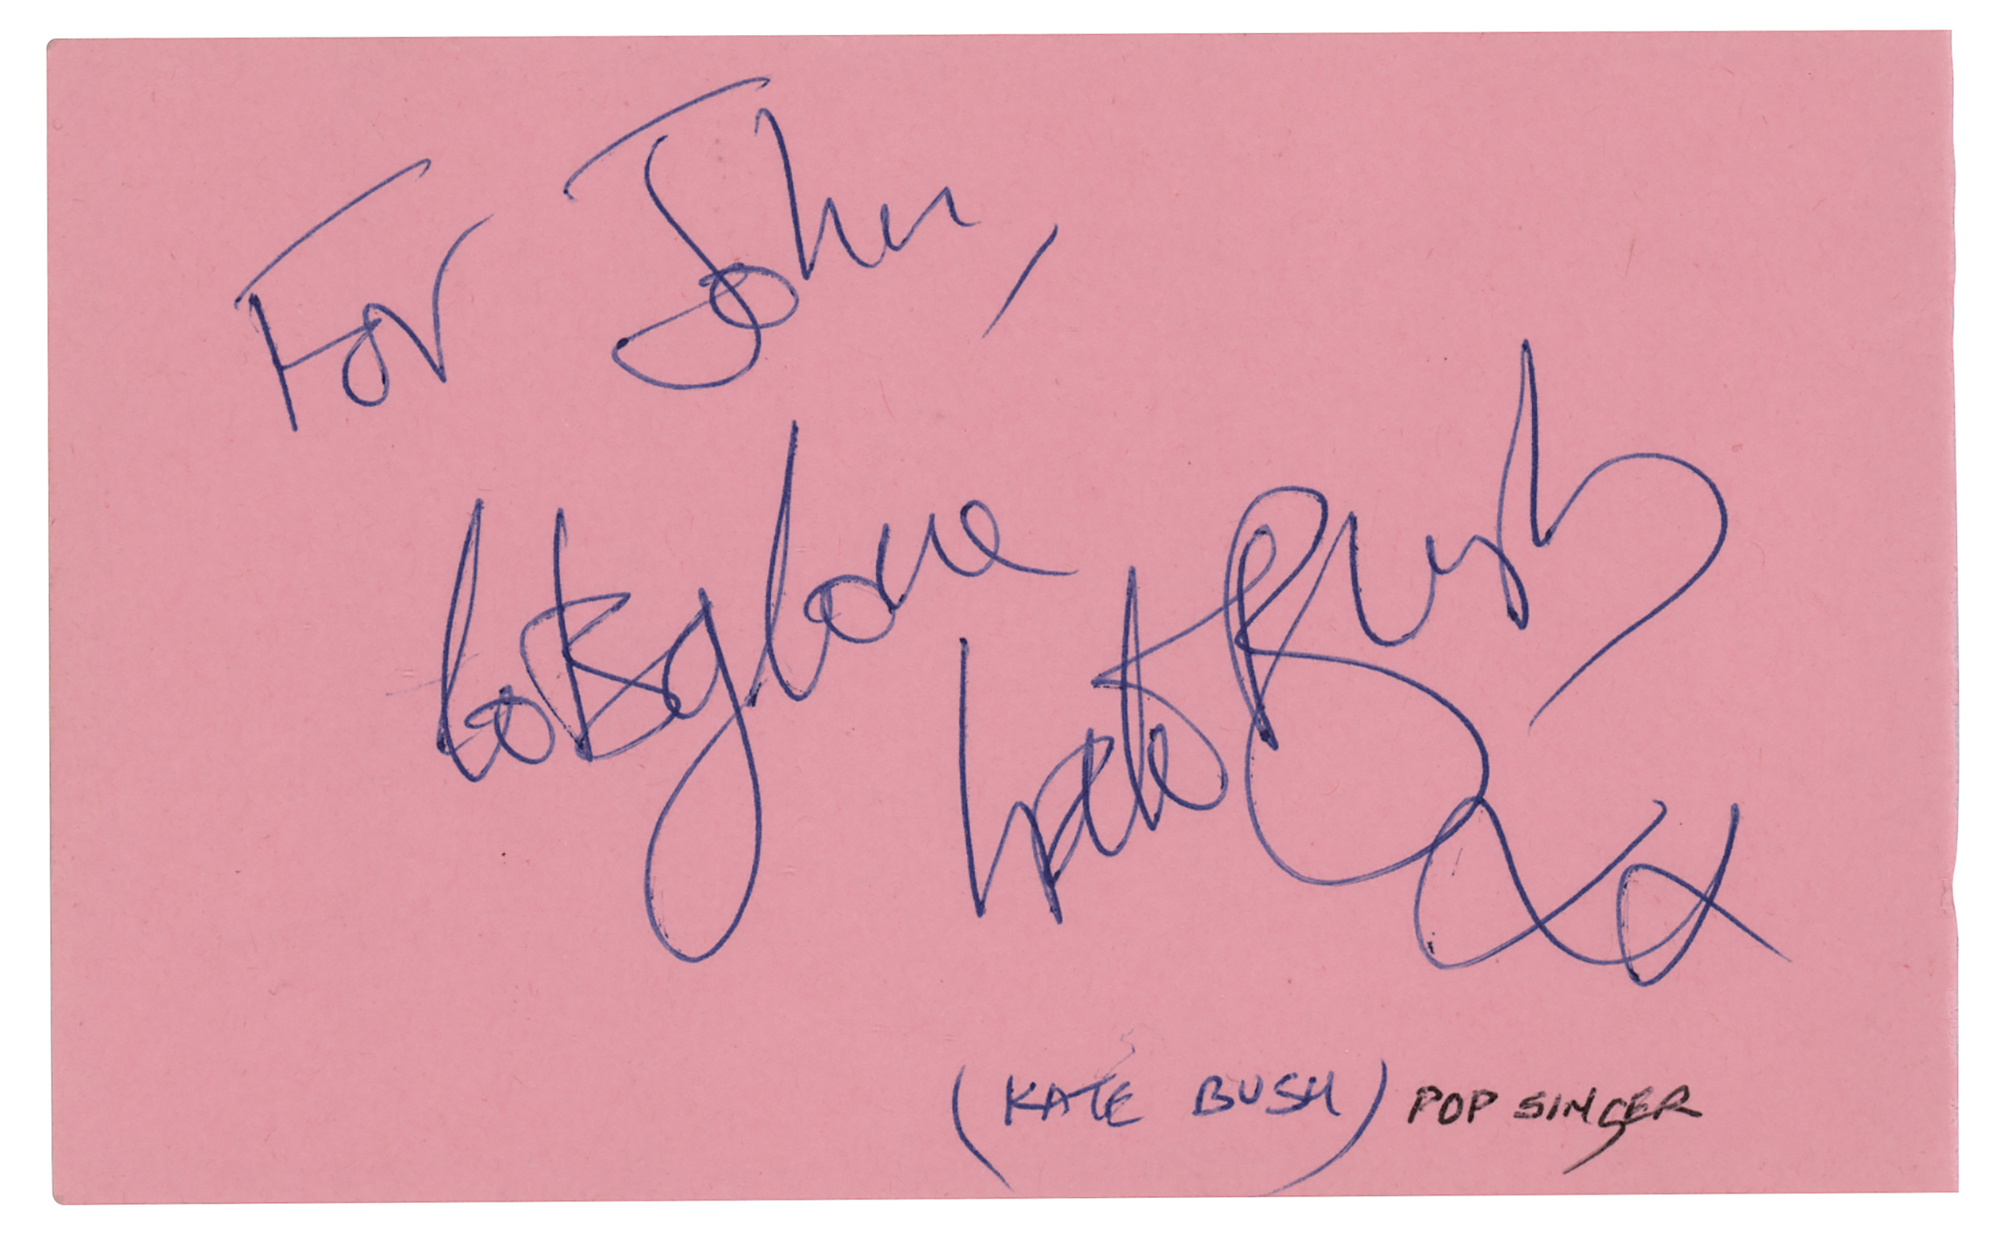 For John,
lots of love
Kate Bush
xx
(KATE BUSH) POP SINGER